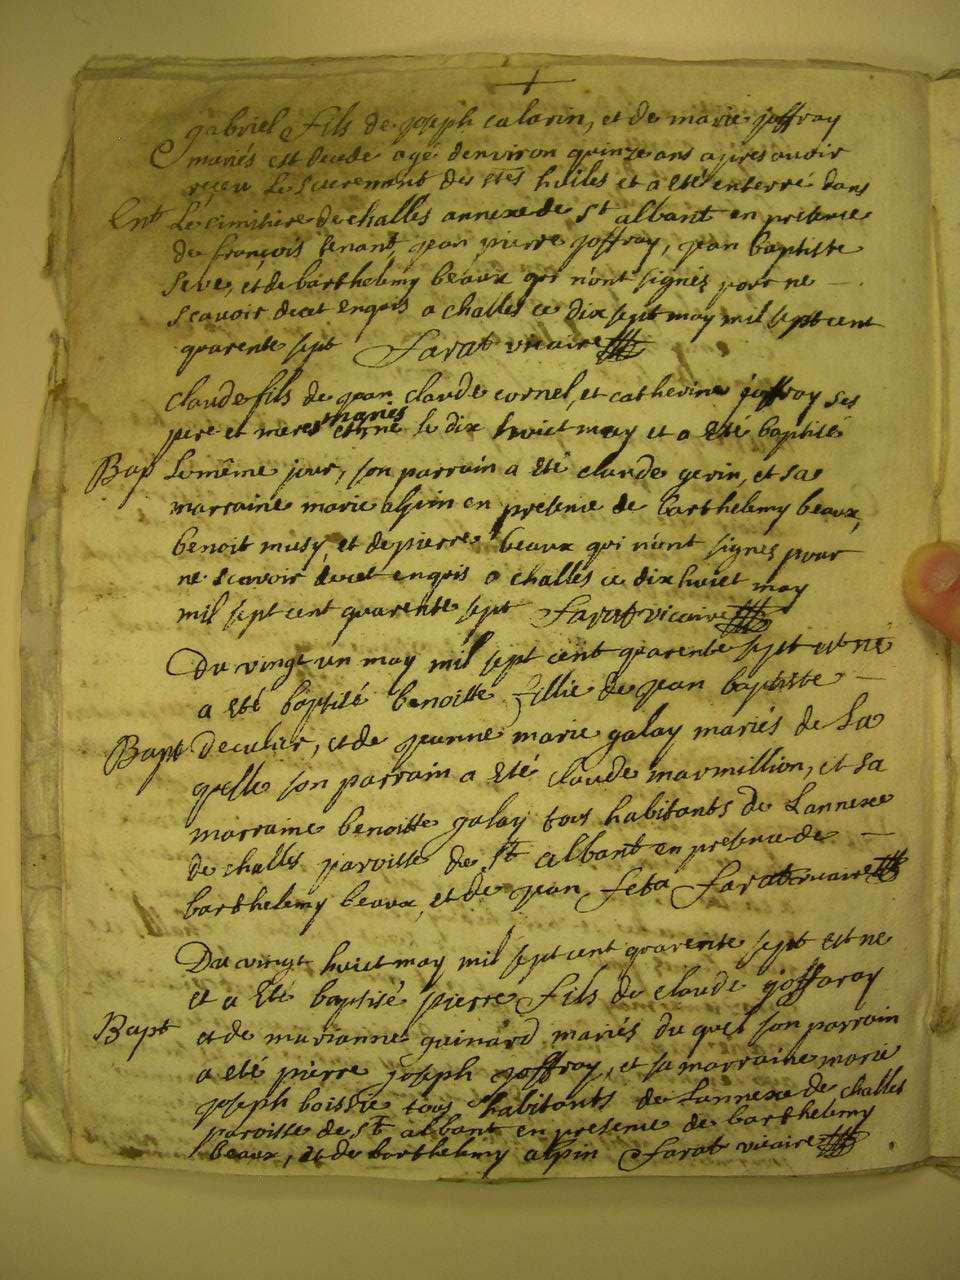 gabriel fils de joseph calarin, et de marie joffray
mariés est decede agé denviron quinze ans apres avoir
reçeu le sacrement des stes huiles et a eté enterré dans
Ent le cimitiere de challes annexe de st albant en presence
de françois tenant, jean pierre joffray, jean baptiste
seve, et de barthelemy beaux qui n'ont signés pour ne
scavoir de cet enquis a challes ce dix sept may mil sept cent
quarente sept Farat vicaire
claude fils de jean claude cornel, et catherine joffray ses
pere et mere mariés est né le dix huict may et a eté baptisé
Bap le même jour, son parrain a eté claude gerin, et sa
marraine marie alpin en presence de barthelemy beaux,
benoit musy, et de pierre beaux qui n'ont signés pour
ne scavoir de cet enquis a challes ce dix huict may
mil sept cent quarente sept Farat vicaire
Du vingt un may mil sept cent quarente sept est né
a eté baptisé benoitte fillie de jean baptiste
Bapt deculier, et de jeanne marie galay mariés de la
quelle son parrain a eté claude marmillion, et sa
marraine benoitte galay tous habitants de lannexe
de challes paroisse de st albant en presence de
barthelemy beaux, et de jean feta Farat vicaire
Du vingt huict may mil sept cent quarente sept est ne
et a eté baptisé pierre fils de claude joffaray
Bapt et de marianne guinard mariés du quel son parrain
a eté pierre joseph joffray, et sa marraine marie
joseph boissie tous habitants de lannexe de challes
paroisse de st albant en presence de barthelemy
beaux, et de barthelemy alpin Farat vicaire